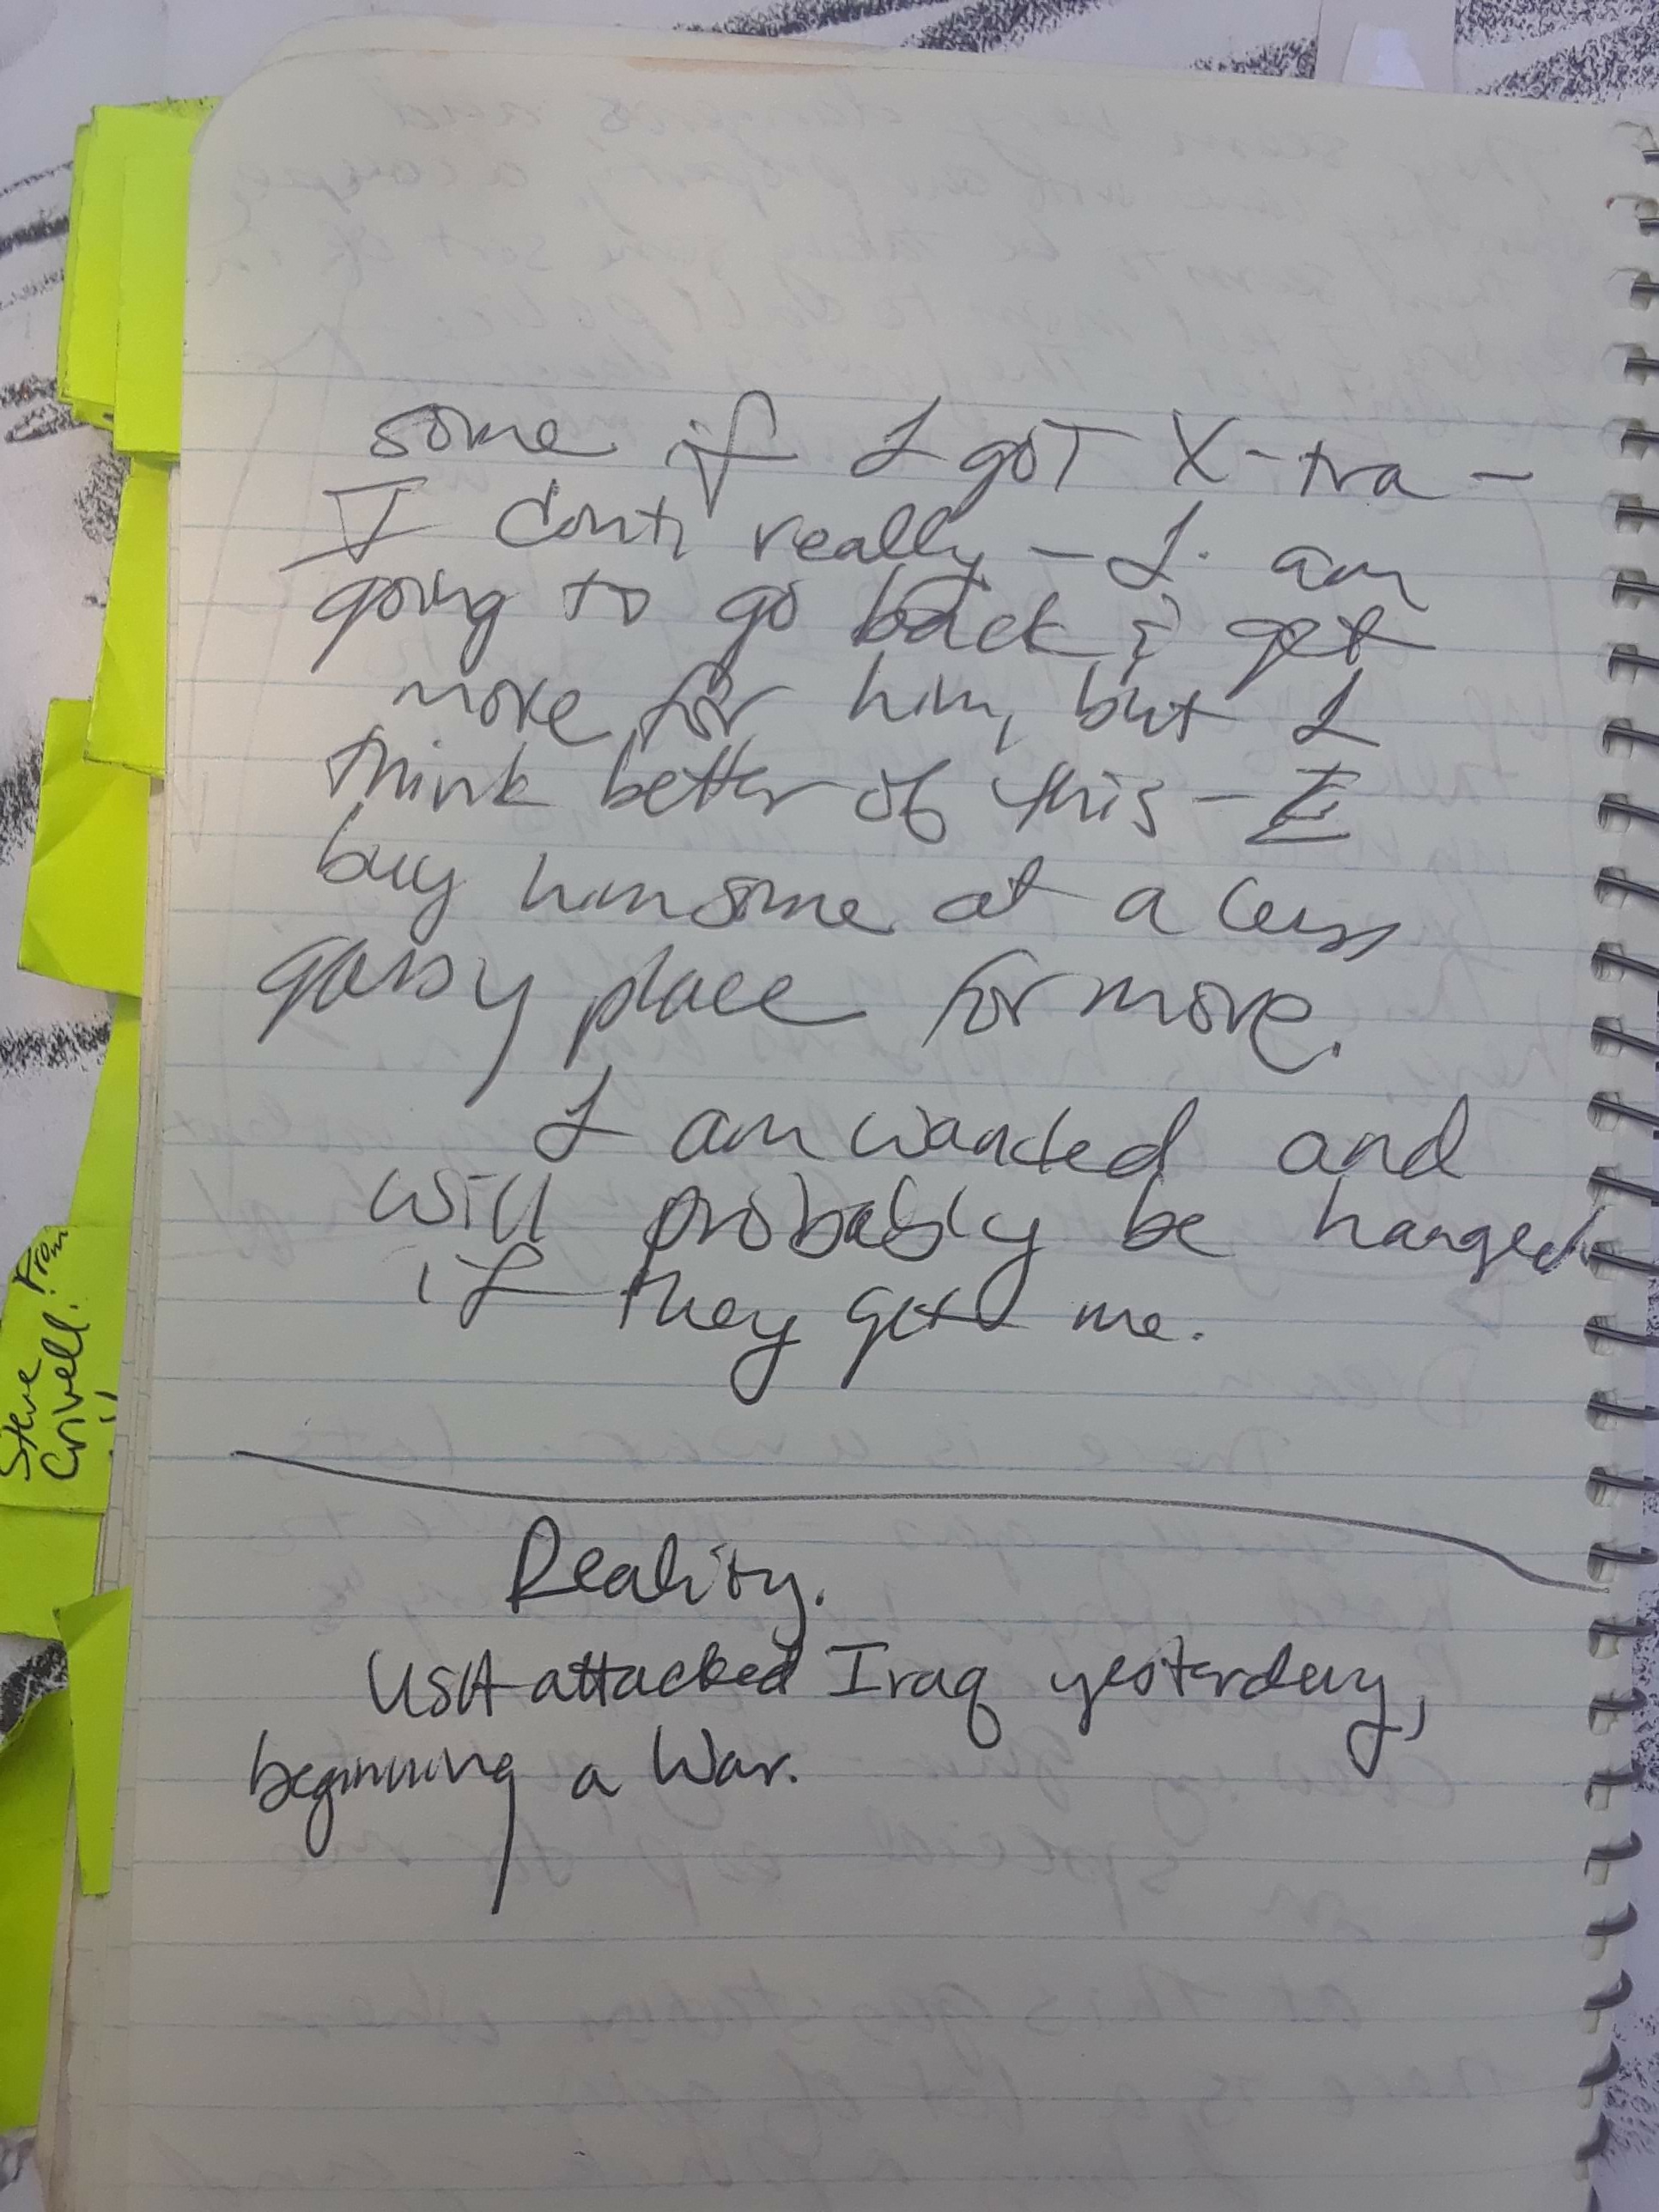 some if I got X-tra -
I don't really - I am
going to go back & get
more for him, but I
think better of this - I
buy him some at a less
gassy place for more.
I am wanted and
will probably be hanged
if they get me.
Reality.
USA attacked Iraq yesterday,
beginning a War.
From
Steve
Crivell